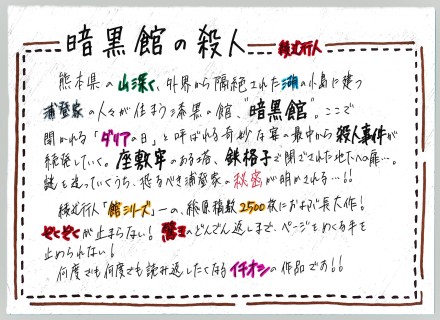 暗黒館の殺人 綾辻行人
熊本県の山深く、外界から隔絶された湖の小島に建つ
浦登家の人々が住まう漆黒の館、"暗黒館"。ここで
開かれる「ダリアの日」と呼ばれる奇妙な宴の最中から殺人事件が
続発していく。座敷牢のある塔、鉄格子で閉ざされた地下への扉…。
謎を追っていくうち、恐るべき浦登家の秘密が明かされる…!!
綾辻行人「館シリーズ」一の、総原稿数2500枚におよぶ長大作!
ぞくぞくが止まらない!驚きのどんでん返しまで、ページをめくる手を
止められない!
何度でも何度でも読み返したくなるイチオシの作品です!!